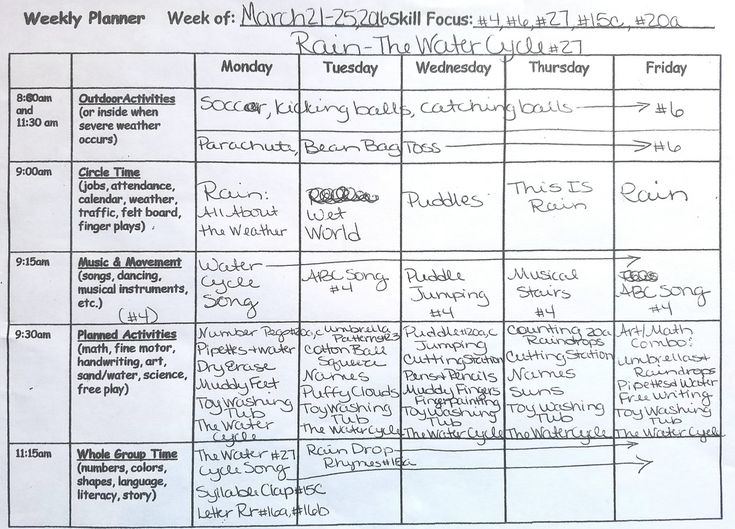 Weekly Planner Week of: March 21-25, 2016 Skill Focus: #4, #6, #27, #15c, #20a
Rain-The Water Cycle #27
Monday Tuesday Wednesday Thursday Friday
8:00am
and
11:30 am
OutdoorActivities
(or inside when
severe weather
occurs)
Soccer, kicking balls, catching balls → #6
Parachute, Bean Bag Toss → #6
9:00am
Circle Time
(jobs, attendance,
calendar, weather,
traffic, felt board,
finger plays)
Rain:
All About
the Weather
Wet
World
Puddles
This Is
Rain
Rain
9:15am
Music & Movement
(songs, dancing,
musical instruments,
etc.)
(#4)
Water
Cycle
Song
ABC Song
#4
Puddle
Jumping
#4
Musical
Stairs
#4
ABC Song
#4
9:30am
Planned Activities
(math, fine motor,
handwriting, art,
sand/water, science,
free play)
Number Page #20a,c
Pipetts + water
Dry Erase
Muddy Feet
Toy Washing
Tub
The Water
Cycle
Umbrella
Patterns
Cotton Ball
Squeeze
Names
Puffy Clouds
Toy Washing
Tub
The Water Cycle
Puddle #20a,c
Jumping
Cutting Station
Pens + Pencils
Muddy Fingers
Fingerpainting
Toy Washing
Tub
The Water Cycle
Counting 20a
Raindrops
Cutting Station
Names
Suns
Toy Washing
Tub
The Water Cycle
Art/Math
Combo:
Umbrellas +
Raindrops
Pipettes + Water
Free Writing
Toy Washing
Tub
The Water Cycle
11:15am
Whole Group Time
(numbers, colors,
shapes, language,
literacy, story)
The Water #27
Cycle Song
Syllable Clap #15c
Letter Rr #16a, #16b
Rain Drop
Rhymes #15a